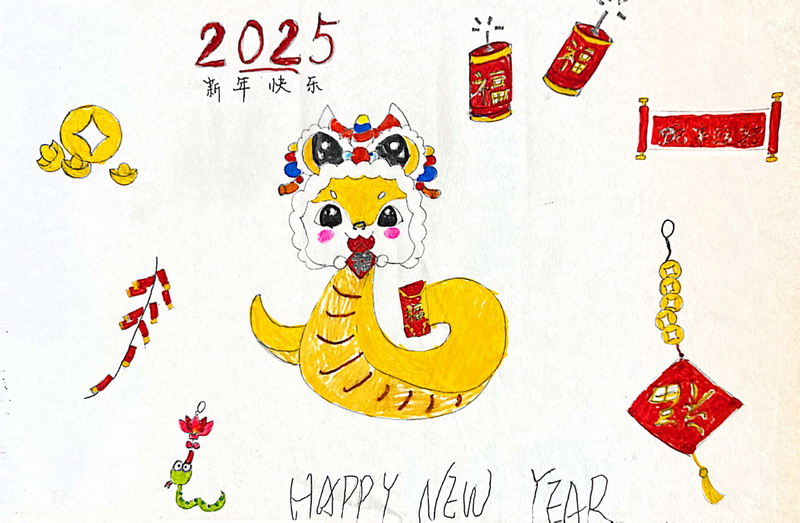 2025
新年快乐
福
福
福
福
HAPPY NEW YEAR